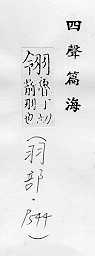 四聲篇海
翎魯丁切
箭羽也
(羽部.1544)